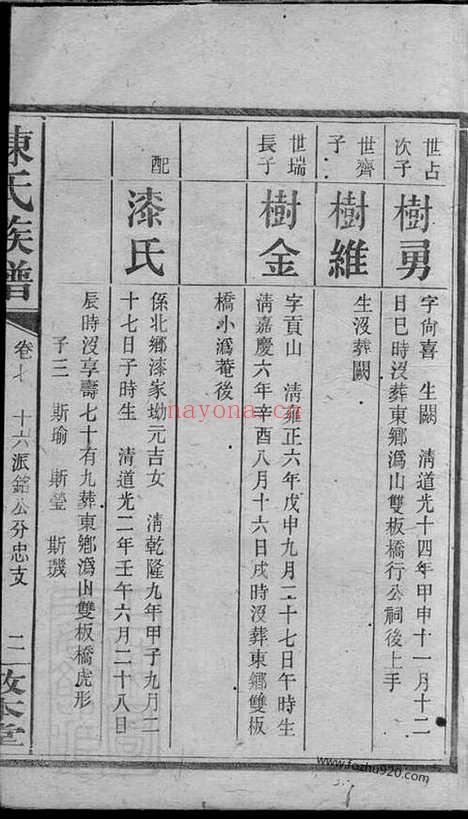 世占
次子
樹勇
字尙喜 生闕 淸道光十四年甲申十一月十二
日巳時沒葬東鄉潙山雙板橋行公祠後上手
世齊
子
樹維
生沒葬闕
世瑞
長子
樹金
字貢山 淸雍正六年戊申九月二十七日午時生
淸嘉慶六年辛酉八月十六日戌時沒葬東鄉雙板
橋小潙菴後
配
漆氏
係北鄉漆家坳元吉女 淸乾隆九年甲子九月二
十七日子時生 淸道光二年壬午六月二十八日
辰時沒享壽七十有九葬東鄉潙山雙板橋虎形
子三 斯瑜 斯瑩 斯璣
陳氏族譜
卷七 十六派銘公分忠支
二
敦本堂
nayona.cn
www.fozhu920.com